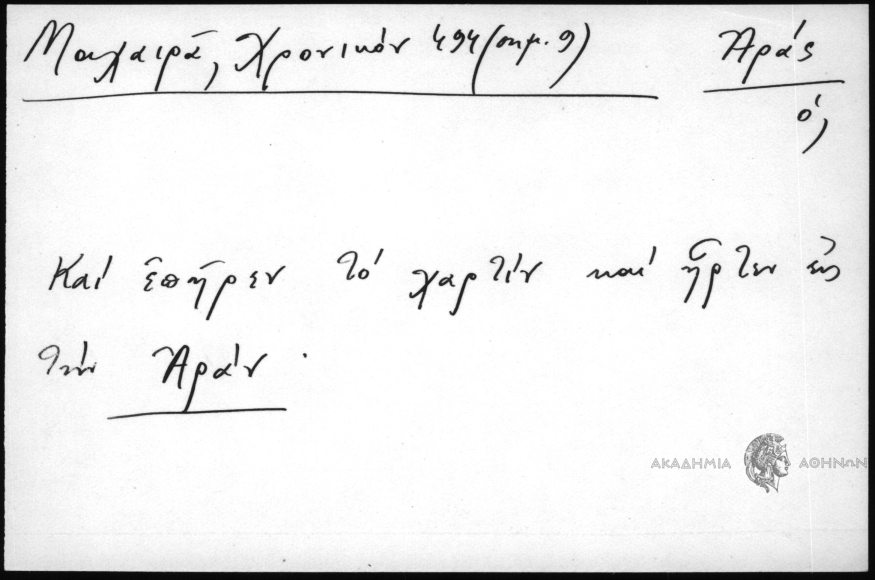 Μαχαιρᾶ, Χρονικόν 494 (σημ. 9) Ἀράς
ὁ,
Καί ἐπῆρεν τό χαρτίν καί ἦρτεν εἰς
τήν Ἀράν.
ΑΚΑΔΗΜΙΑ ΑΘΗΝΩΝ